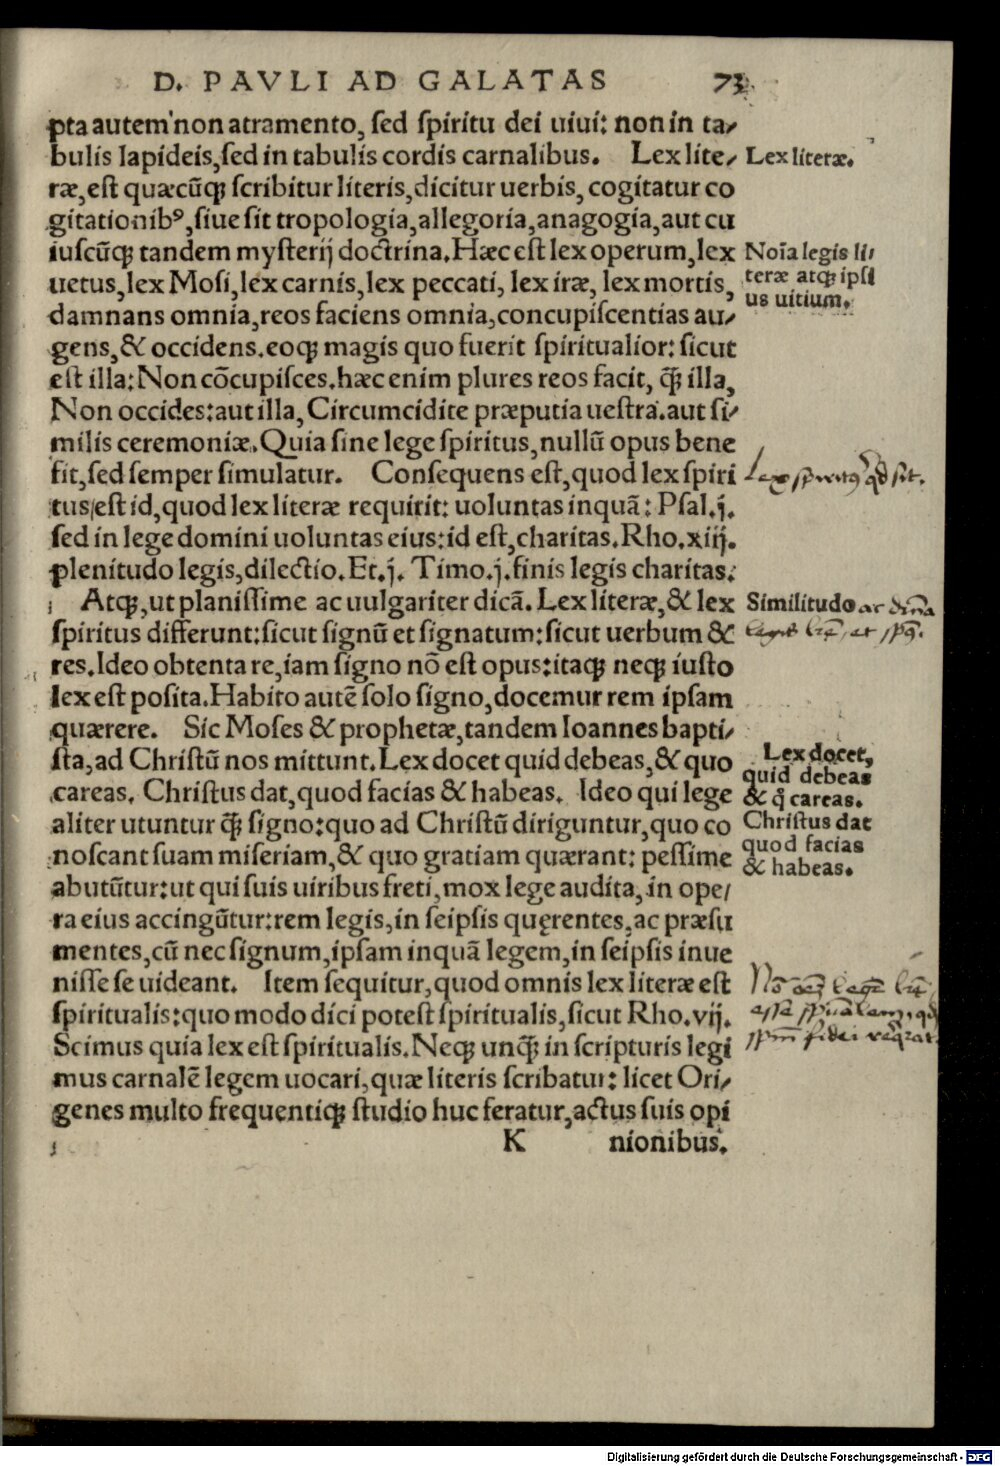 D. PAVLI AD GALATAS 73
pta autem non atramento, sed spiritu dei uiui: non in ta/
bulis lapideis, sed in tabulis cordis carnalibus. Lex lite/
Lex literæ.
ræ, est quæcũq; scribitur literis, dicitur uerbis, cogitatur co
gitationibꝰ, siue sit tropologia, allegoria, anagogia, aut cu
iuscũq; tandem mysterij doctrina. Hæc est lex operum, lex
uetus, lex Mosi, lex carnis, lex peccati, lex iræ, lex mortis,
damnans omnia, reos faciens omnia, concupiscentias au/
Noĩa legis li/
teræ atq; ipsi
us uitium.
gens, & occidens. eoq; magis quo fuerit spiritualior: sicut
est illa: Non cõcupisces. hæc enim plures reos facit, q̃ illa,
Non occides: aut illa, Circumcidite præputia uestra. aut si/
milis ceremoniæ. Quia sine lege spiritus, nullũ opus bene
fit, sed semper simulatur. Consequens est, quod lex spiri
Lex spiritꝰ qd sit.
tus, est id, quod lex literæ requirit: uoluntas inquã: Psal. j.
sed in lege domini uoluntas eius: id est, charitas. Rho. xiij.
plenitudo legis, dilectio. Et. j. Timo. j. finis legis charitas.
Atq;, ut planissime ac uulgariter dicã. Lex literæ, & lex
Similitudo ac
spiritus differunt: sicut signũ et signatum: sicut uerbum &
res. Ideo obtenta re, iam signo nõ est opus: itaq; neq; iusto
lex est posita. Habito autẽ solo signo, docemur rem ipsam
quærere. Sic Moses & prophetæ, tandem Ioannes bapti/
sta, ad Christũ nos mittunt. Lex docet quid debeas, & quo
careas. Christus dat, quod facias & habeas. Ideo qui lege
aliter utuntur q̃ signo: quo ad Christũ diriguntur, quo co
noscant suam miseriam, & quo gratiam quærant: pessime
Lex docet,
quid debeas
& q̃ careas.
Christus dat
quod facias
& habeas.
abutũtur: ut qui suis uiribus freti, mox lege audita, in ope/
ra eius accingũtur: rem legis, in seipsis quęrentes, ac præsu
mentes, cũ nec signum, ipsam inquã legem, in seipsis inue
nisse se uideant. Item sequitur, quod omnis lex literæ est
spiritualis: quo modo dici potest spiritualis, sicut Rho. vij.
Scimus quia lex est spiritualis. Neq; unq̃ in scripturis legi
mus carnalẽ legem uocari, quæ literis scribatur: licet Ori/
genes multo frequentiq; studio huc feratur, actus suis opi
K nionibus.
Digitalisierung gefördert durch die Deutsche Forschungsgemeinschaft - DFG